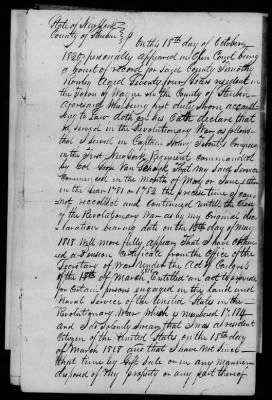 State of New York
County of Steuben } SS
On this 18th day of October
1820 personally appeared in Open Court being
a Court of record for said County Timothy
aged Seventy four years resident in
the Town of Wayne in the County of Steuben
aforesaid who being first duly sworn accord
ing to Law doth on his Oath declare that
he served in the Revolutionary War as follows
that I served in Captain Company
in the first New York Regiment commanded
by Col Goose Van Schaick That my said service
Commenced in the month of May or June either
in the year 1781 or 1782 the precise time I can
not recollect and continued untill the Close
of the Revolutionary War as by my Original dec
laration bearing date on the 18th day of May
1818 Will more fully appear that I have obtain
ed a Pension Certificate from the Office of the
Secretary of War Under the Act of Congress
of the 18th of March 1818 Entitled an act to provide
for Certain persons engaged in the land and
Naval Service of the United States in the
Revolutionary War which is numbered
and I do Solemly Swear that I was a resident
Citizen of the United States on the 18th day
of March 1818 and that I have not since
that time by Gift Sale or in any manner
disposed of my property or any part thereof